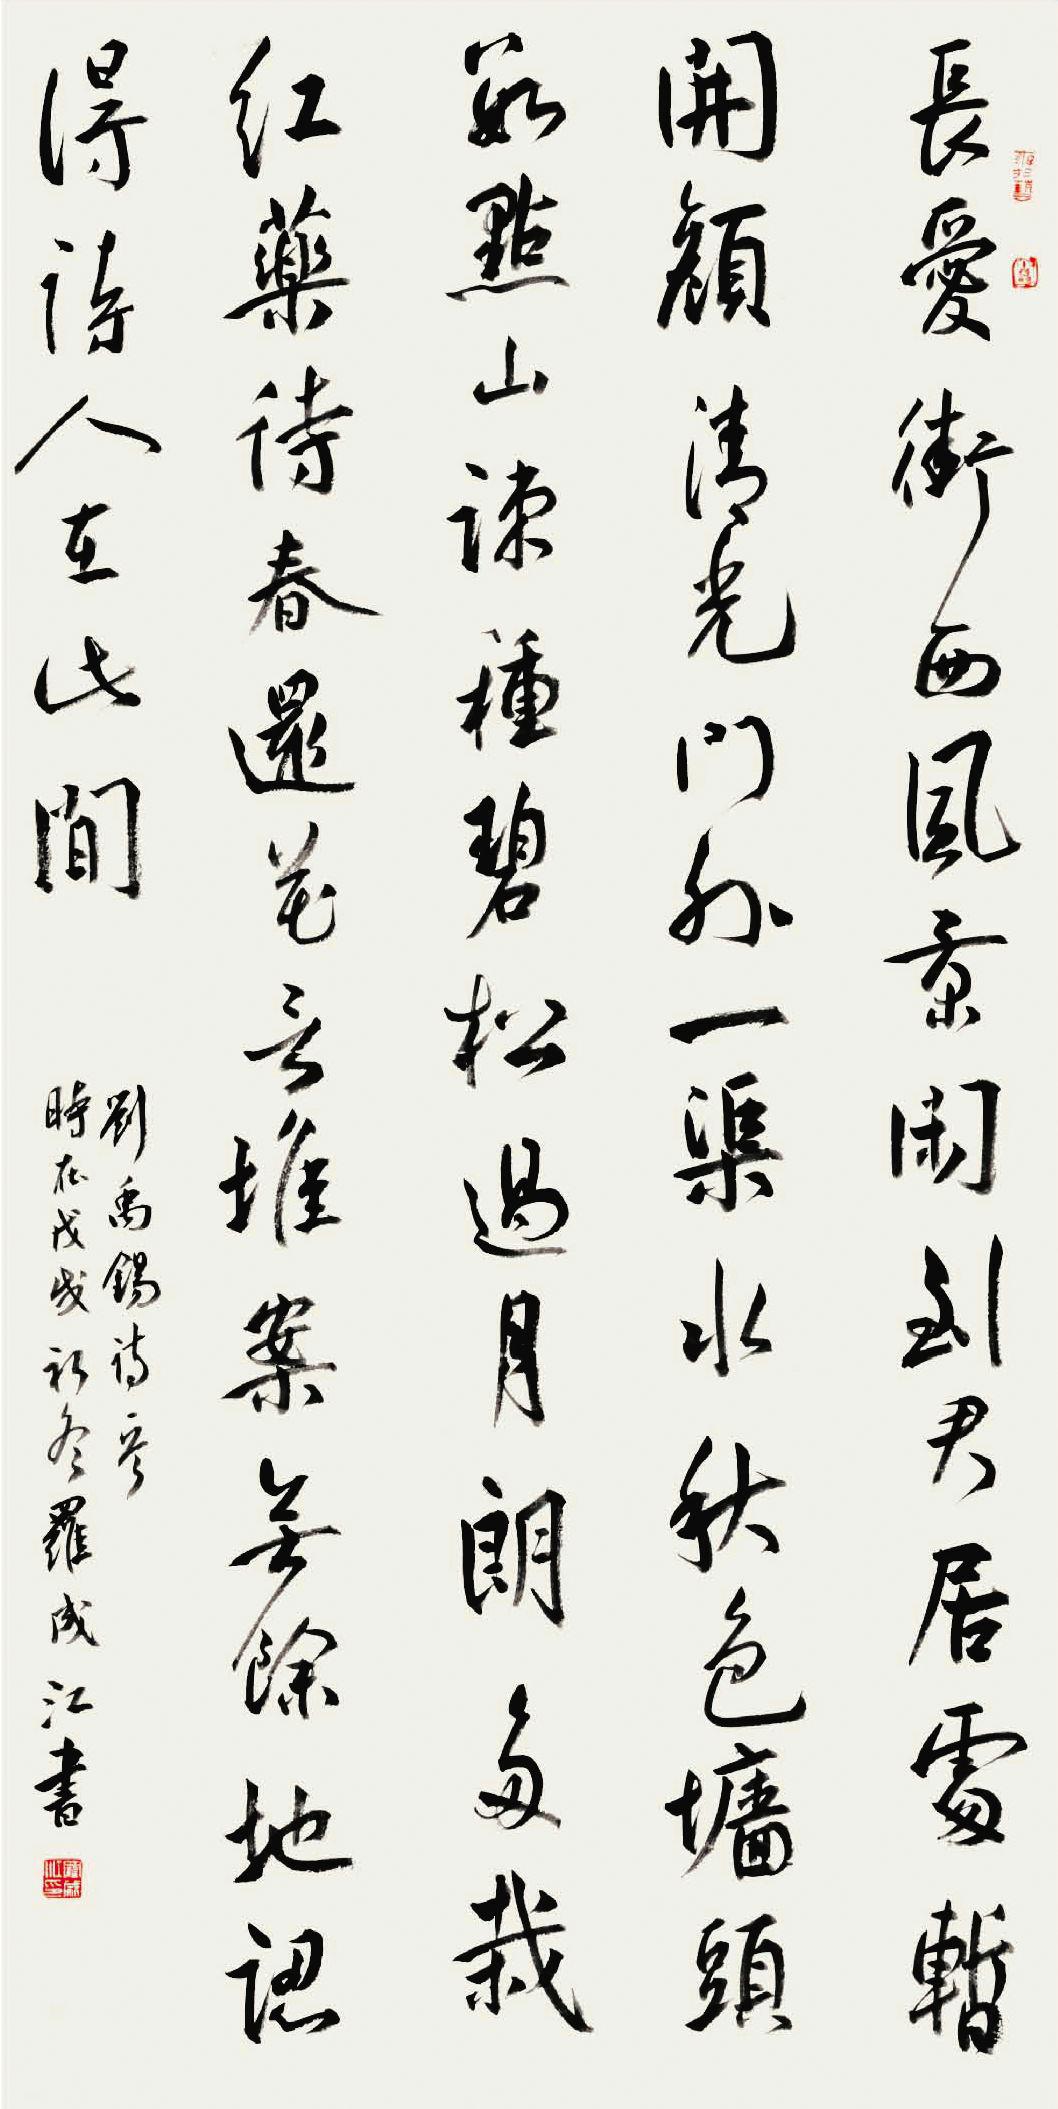 長愛街西風景閑到君居處暫
開顏清光門外一渠水秋色墻頭
數點山疎種碧松過月朗多栽
紅藥待春還花言堆案無餘地認
得詩人在此間
劉禹錫詩
時在戊戌初冬羅成江書